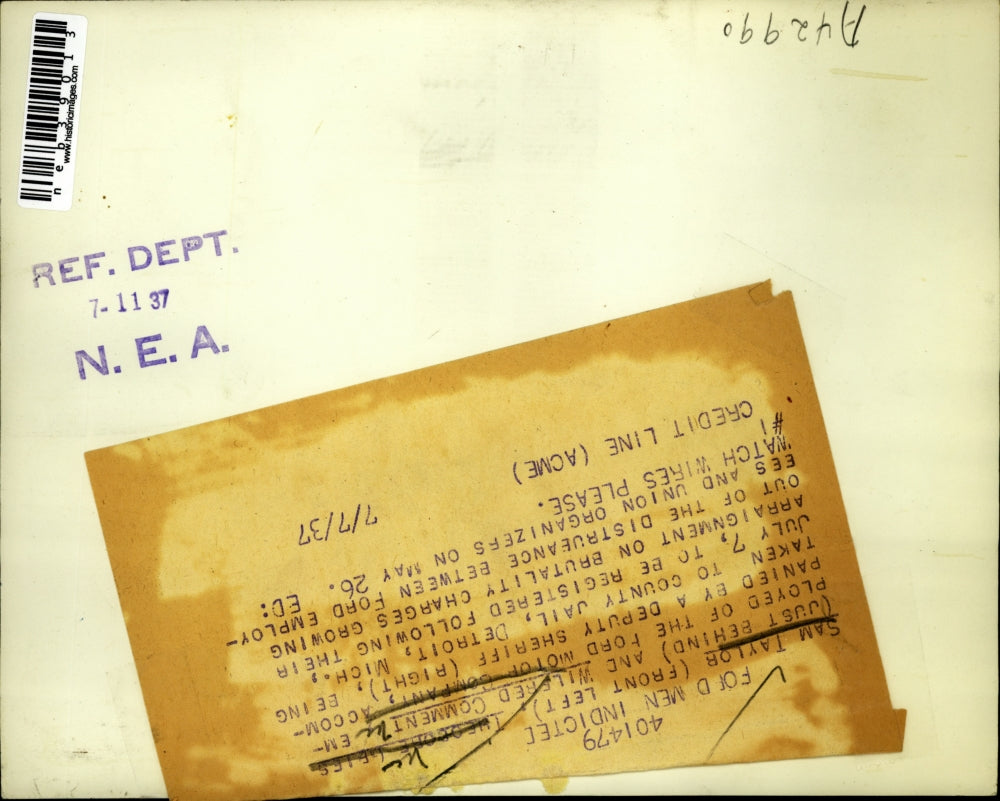 neb39013
www.historicimages.com
A42990
REF. DEPT.
7-11 37
N. E. A.
401479
FORD MEN INDICTED
SAM TAYLOR (FRONT LEFT) THEODORE
(JUST BEHIND) AND WILFRED COMMENT EM-
PLOYED OF THE FORD MOTOR COMPANY, ACCOM-
PANIED BY A DEPUTY SHERIFF (RIGHT), BEING
TAKEN TO COUNTY JAIL, DETROIT, MICH.,
JULY 7, TO BE REGISTERED FOLLOWING THEIR
ARRAIGNMENT ON BRUTALITY CHARGES GROWING
OUT OF THE DISTRUEANCE BETWEEN FORD EMPLOY-
EES AND UNION ORGANIZERS ON MAY 26. ED:
WATCH WIRES PLEASE.
#1
CREDIT LINE (ACME) 7/7/37